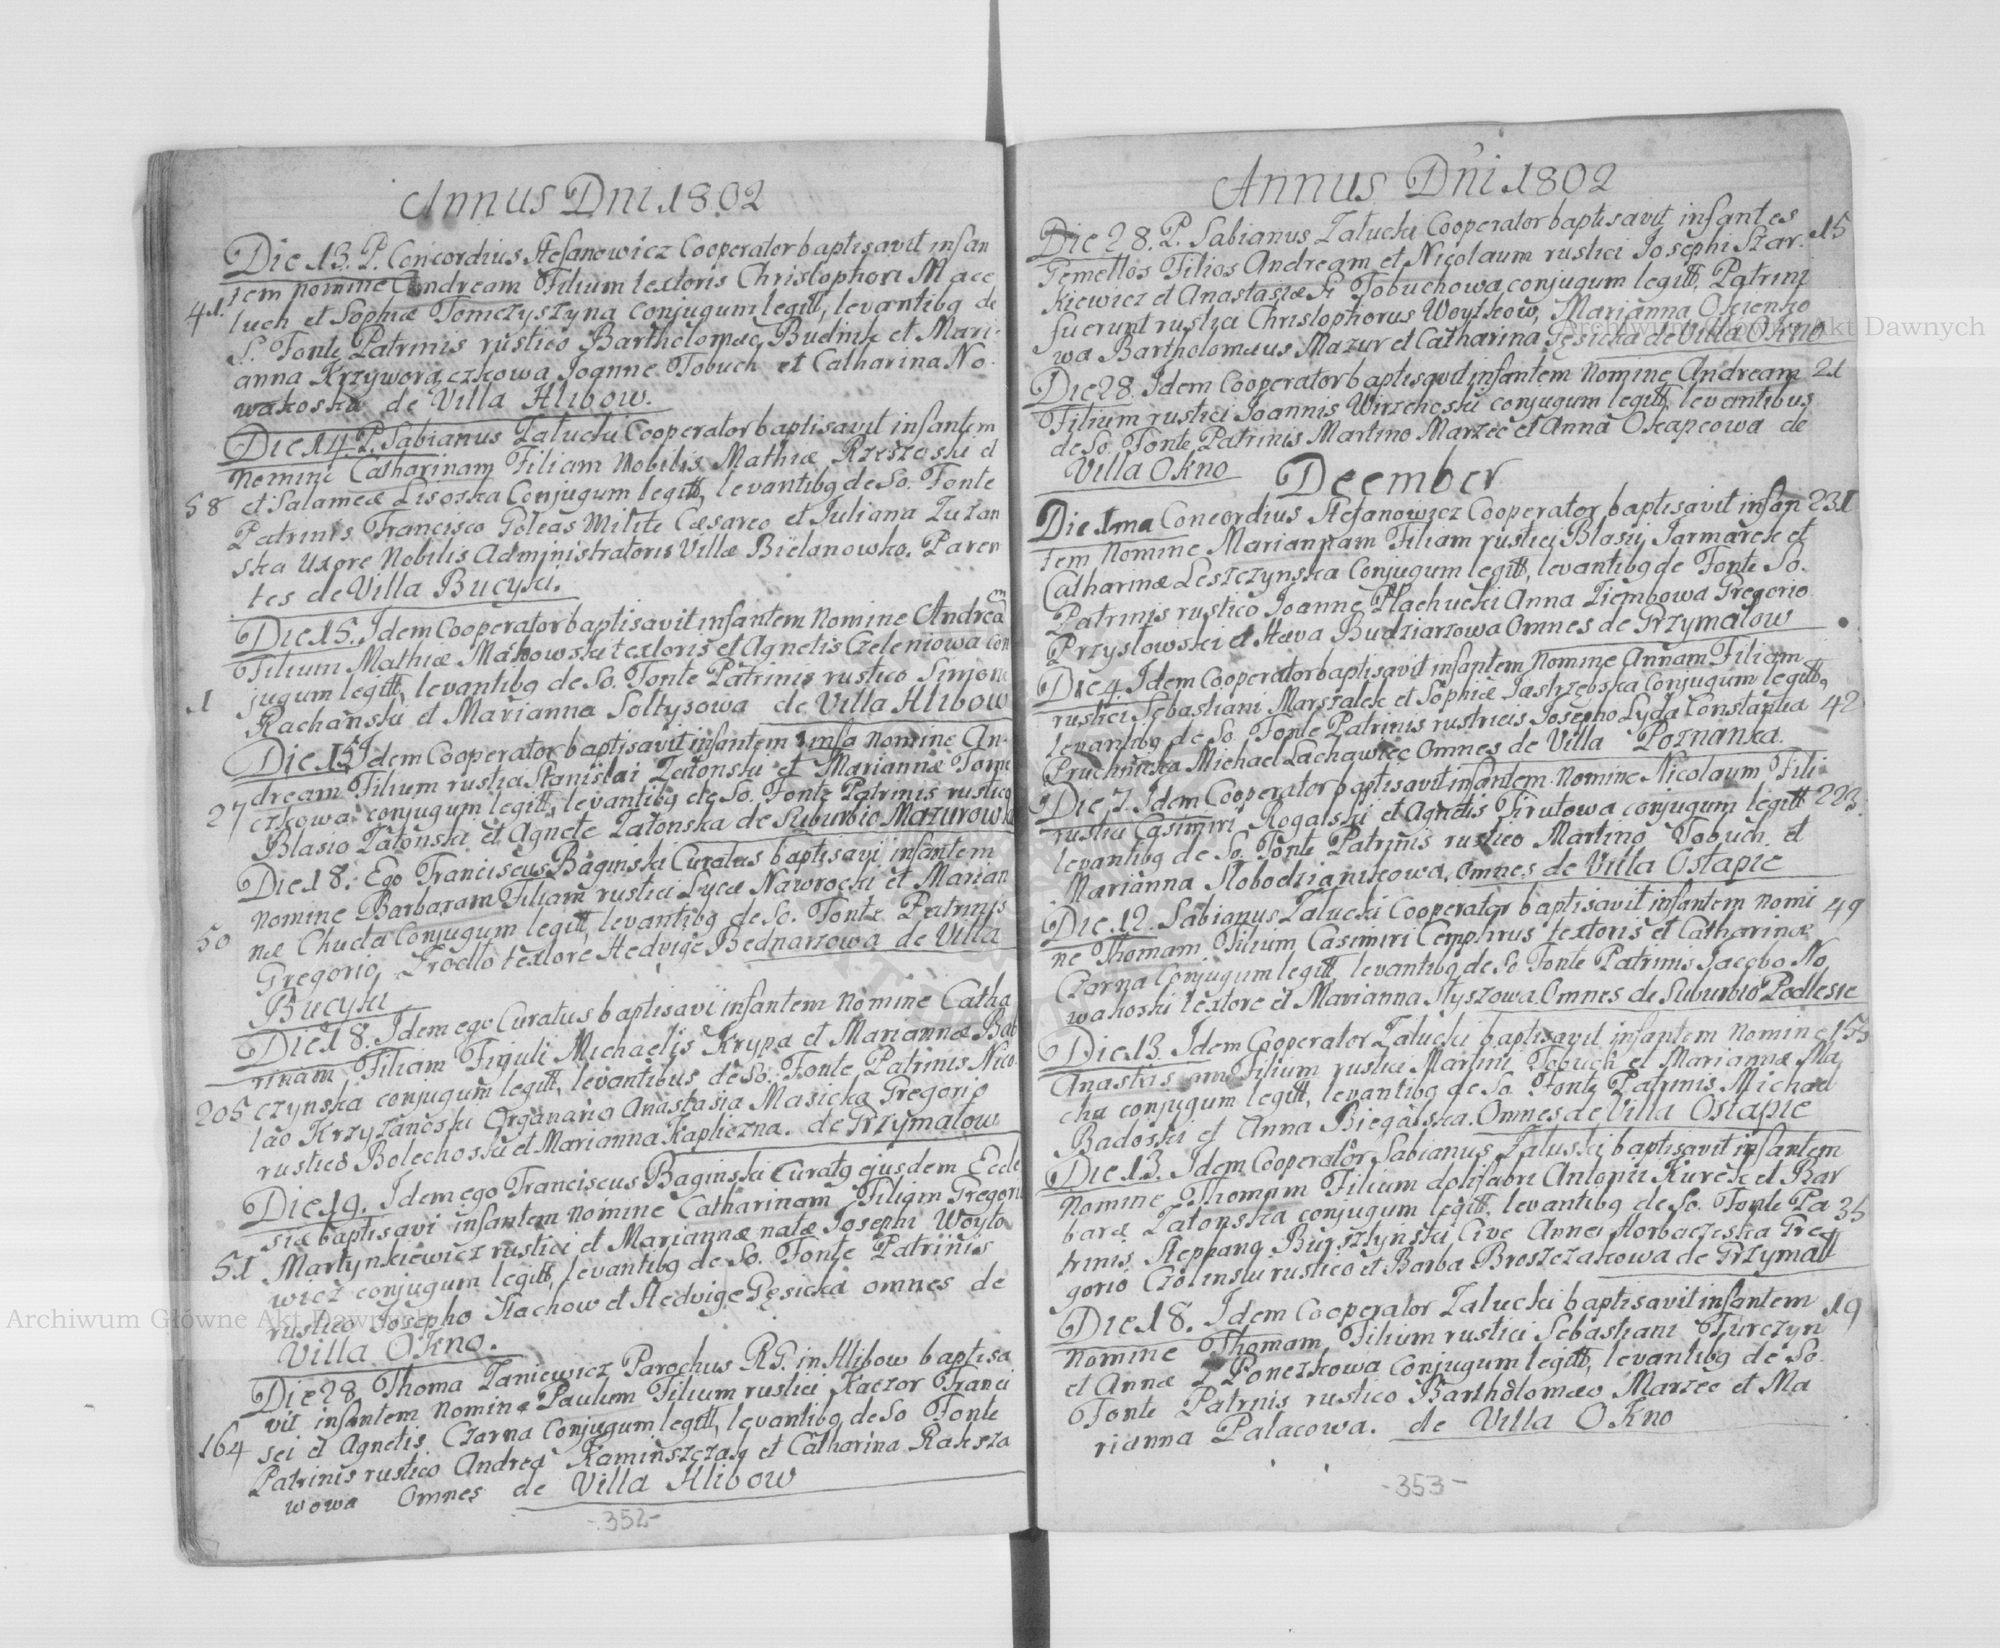 Annus Dni 1802
Die 13. P. Concordius Stefanowicz Cooperator baptisavit infan
tem nomine Andream Filium textoris Christophori Mace
41.
luch et Sophiæ Tomczyszyna Conjugum legitt, levantibq de
S. Fonte Patrinis rustico Bartholomæo Budnik et Mari-
anna Krzyworączkowa Joanne Tobuch et Catharina No-
wakoska de Villa Hlibow.
Die 14 P. Sabianus Zatucki Cooperator baptisavit infantem
Nomine Catharinam Filiam Nobilis Mathiæ Rzeszoski et
58
et Salomeæ Lisoska Conjugum legitt, levantibq de So. Fonte
Patrinis Francisco Goleas Milite Cæsareo et Juliana Zuzan
ska Uxore Nobilis Administratoris Villæ Bielanowko. Paren
tes de Villa Bucyki.
Die 15. Idem Cooperator baptisavit infantem Nomine Andream
Filium Mathiæ Makowski textoris et Agnetis Czeleniowa Con
jugum legitt, levantibq de So. Fonte Patrinis rustico Simone
1
Rachanski et Marianna Soltysowa de Villa Hlibow
Die 15 Idem Cooperator baptisavit infantem infa nomine An-
dream Filium rustica Stanislai Zatonski et Mariannæ Tom
27
czkowa conjugum legitt, levantibq de So. Fonte Patrinis rustico
Blasio Zatonski et Agnete Zatonska de Suburbio Mazurowka
Die 18. Ego Franciscus Baginski Curatus baptisavi infantem
Nomine Barbaram Filiam rustici Lucæ Nawrocki et Marian
50
næ Chuda Conjugum legitt, levantibq de So. Fonte Patrinis
Gregorio Zrodlo textore Hedvige Bednarzowa de Villa
Bucyki
Die 18. Idem ego Curatus baptisavi infantem nomine Catha
rinam Filiam Figuli Michaelis Krypa et Mariannæ Bab
205
czynska conjugum legitt, levantibus de So. Fonte Patrinis Nico
lao Krzyzanoski Organario Anastasia Masicka Gregorio
rustico Bolechoski et Marianna Kapliczna. de Grzymalow
Die 19. Idem ego Franciscus Baginski Curatq ejusdem Eccle
siæ baptisavi infantem nomine Catharinam Filiam Gregorii
51
Martynkiewicz rustici et Mariannæ natæ Josephi Woyto
wicz conjugum legitt, levantibq de So. Fonte Patrinis
rustico Josepho Stachow et Hedvige Gęsicka omnes de
Villa Okno.
Die 28 Thoma Janiewicz Parochus R.G. in Hlibow baptisa
vit infantem nomine Paulum Filium rustici Kaczor Franci
164
sci et Agnetis Czarna Conjugum legitt, levantibq de So Fonte
Patrinis rustico Andrea Kaminszczaq et Catharina Raksza
wowa Omnes de Villa Hlibow
-352-
Annus Dni 1802
Die 28. P. Sabianus Zatucki Cooperator baptisavit infantes 15
Gemellos Filios Andream et Nicolaum rustici Josephi Star-
kiewicz et Anastasiæ Tobuchowa conjugum legitt, Patrini
fuerunt rustici Christophorus Woytkow, Marianna Okienko
wa Bartholomæus Mazur et Catharina Gęsicka de Villa Okno
Die 28. Idem Cooperator baptisavit infantem nomine Andream 21
Filium rustici Joannis Wirzchoski conjugum legitt, levantibus
de So. Fonte Patrinis Martino Marzec et Anna Okapcowa de
Villa Okno
December
Die 1ma Concordius Stefanowicz Cooperator baptisavit infan 231
tem Nomine Mariannam Filiam rustici Blasij Jarmarek et
Catharinæ Leszczynska Conjugum legitt, levantibq de Fonte So.
Patrinis rustico Joanne Plachucki Anna Ziembowa Gregorio
Przystowski et Hæva Budziarzowa Omnes de Grzymalow
Die 4 Idem Cooperator baptisavit infantem Nomine Annam Filiam
rustici Sebastiani Marszalek et Sophiæ Jastrzębska Conjugum legitt,
levantibq de So. Fonte Patrinis rustricis Josepho Lyda Constantia 42
Pruchnicka Michael Lachawiec Omnes de Villa Poznanka.
Die 7. Idem Cooperator baptisavit infantem Nomine Nicolaum Fili
rustici Casimiri Rogalski et Agnetis Firutowa conjugum legitt 223
levantibq de So. Fonte Patrinis rustico Martino Tobuch et
Marianna Slobodzianikowa, omnes de Villa Ostapie
Die 12. Sabianus Zalucki Cooperator baptisavit infantem nomi 49
ne Thomam Filium Casimiri Cemplirus textoris et Catharinæ
Czarna Conjugum legitt levantibq de So Fonte Patrinis Jacobo No
wakoski textore et Marianna Styszowa. Omnes de Suburbio Podlesie
Die 13. Idem Cooperator Zalucki baptisavit infantem Nomine 153
Filium rustici Martini Tobuch et Mariannæ Ma
cha conjugum legitt, levantibq de So Fonte Patrinis Michael
Badoski et Anna Biegalska. Omnes de Villa Ostapie
Die 13. Idem Cooperator Sabianus Zaluski baptisavit infantem
Nomine Thomam Filium dolifabri Antonii Kurek et Bar
baræ Zatonska conjugum legitt, levantibq de So. Fonte Pa 35
trinis Stephano Burszlynski Cive Anna Horbaczeska Gre
gorio Czolinski rustico et Barba Broszczakowa de Grzymall
Die 18. Idem Cooperator Zalucki baptisavit infantem 19
Nomine Thomam, Filium rustici Sebastiani Turczyn
et Annæ Ponczkowa Conjugum legitt, levantibq de So.
Fonte Patrnis rustico Bartholomæo Marzec et Ma
rianna Palacowa. de Villa Okno
-353-
Archiwum Główne Akt Dawnych
Archiwum Główne Akt Dawnych